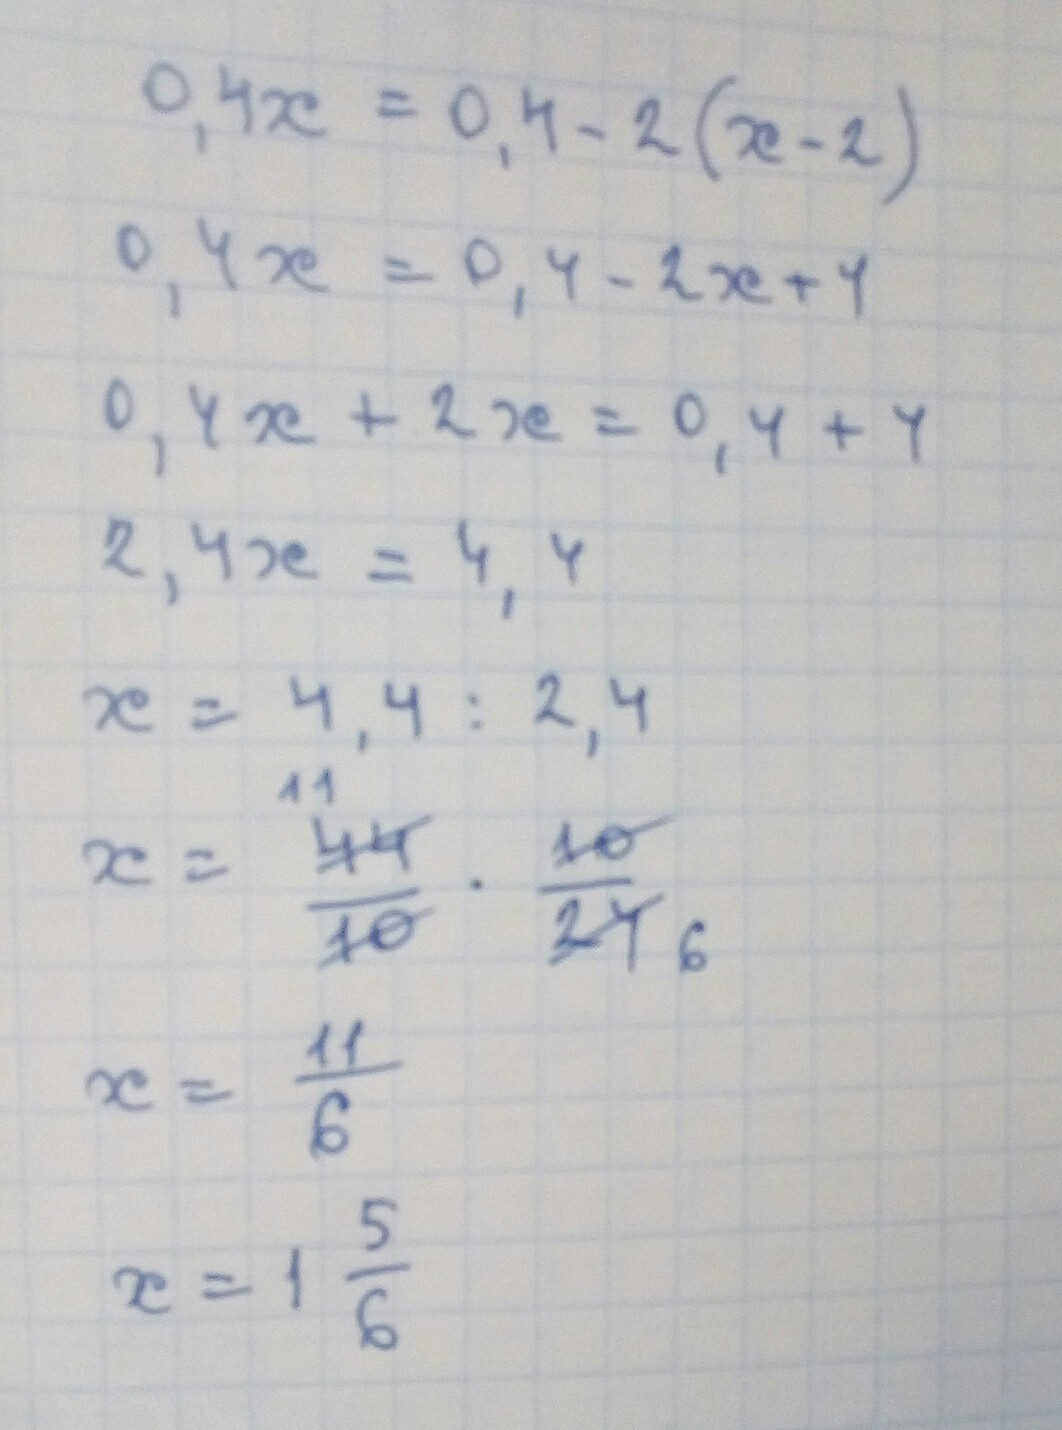 0,4x = 0,4 - 2(x - 2)
0,4x = 0,4 - 2x + 4
0,4x + 2x = 0,4 + 4
2,4x = 4,4
x = 4,4 : 2,4
11
x = 44/10 · 10/24 6
x = 11/6
x = 1 5/6